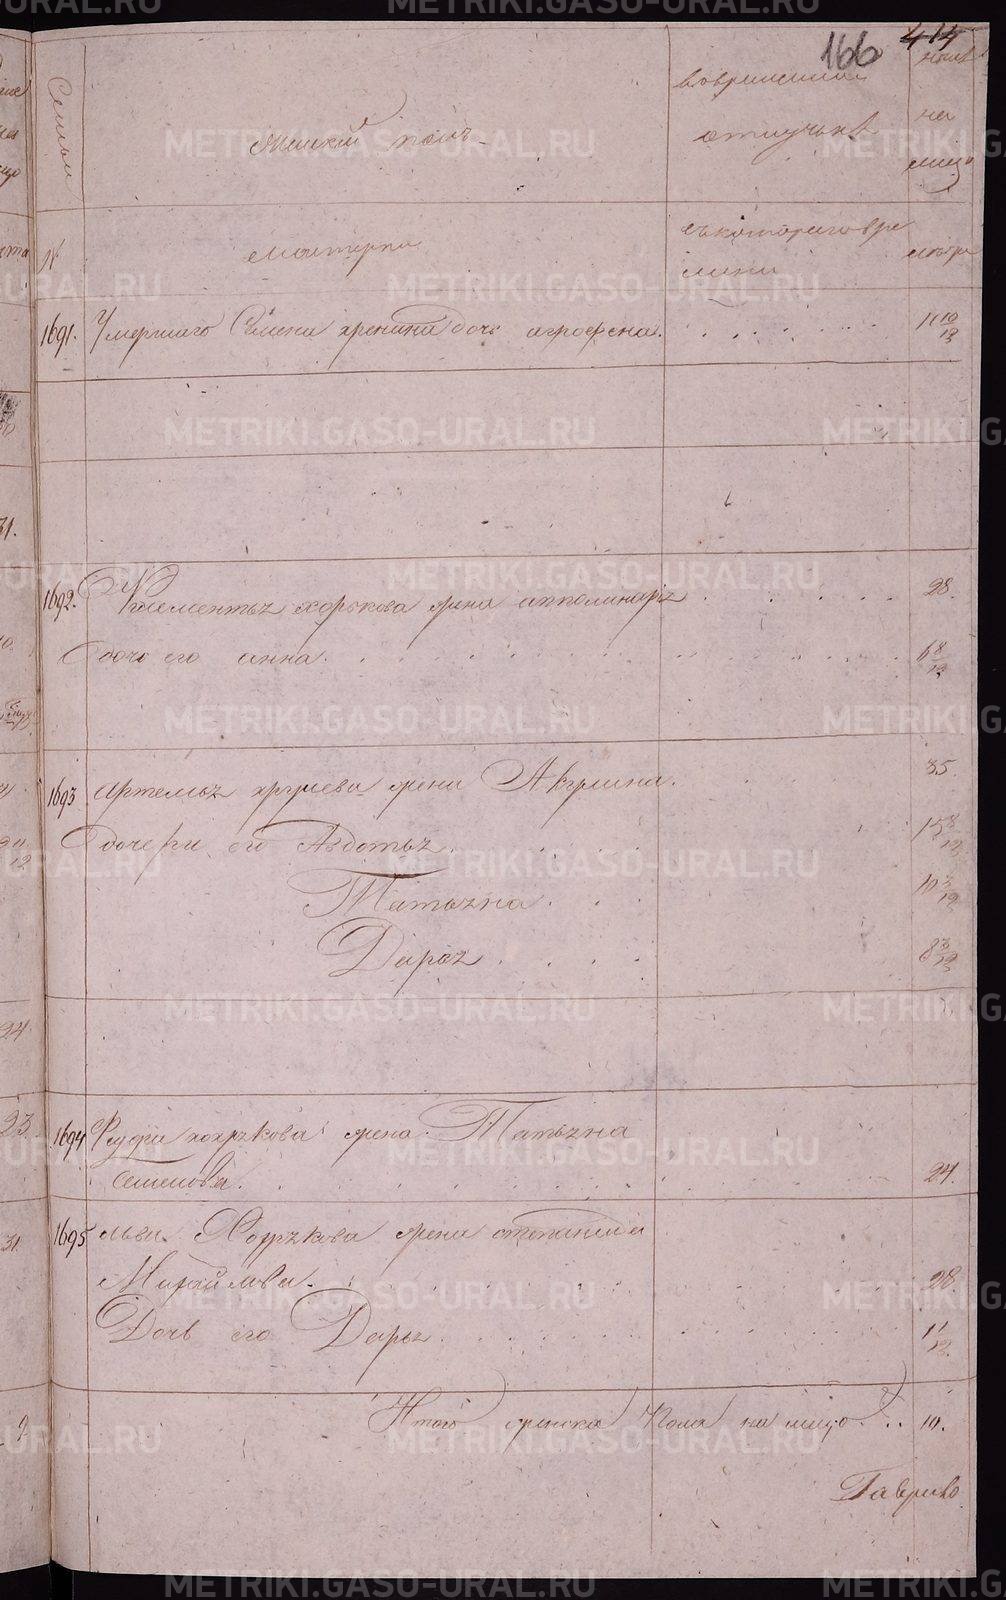 166 414
Семьи
Женский полъ
во временной
отлучке
ныне
на
лицо
№
мастерка
съ котораго вре
мени
лѣтъ
1691. Умершаго Семена дочь агрофена. 11 10/12
1692. Клементья хорькова жена апполинарья 28.
дочь его анна. 6 8/12
1693 Артемья жена Акулина. 35.
дочери его Авдотья. 15 8/12
Татьяна. 10 3/12
Дарья. 8 3/12
1694 хохрякова жена Татьяна
семенова. 24.
1695 льва жена степанида
Михайлова. 28
Дочь его Дарья 1/12
Итого женска пола на лицо 10.
Гаврило
METRIKI.GASO-URAL.RU